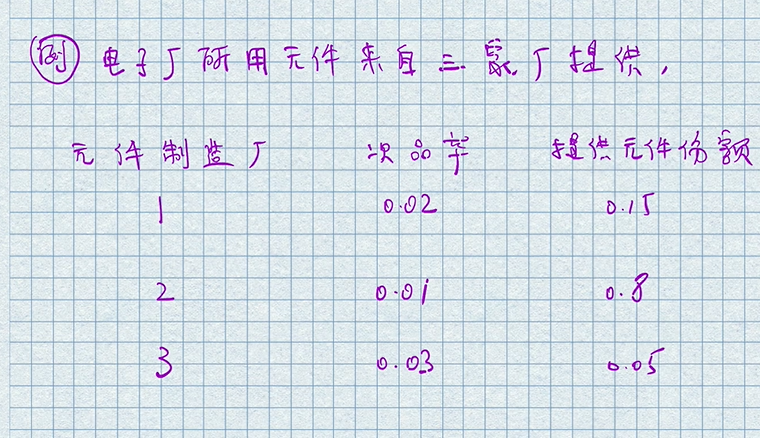 例 电子厂所用元件来自三家厂提供,
元件制造厂 次品率 提供元件份额
1 0.02 0.15
2 0.01 0.8
3 0.03 0.05